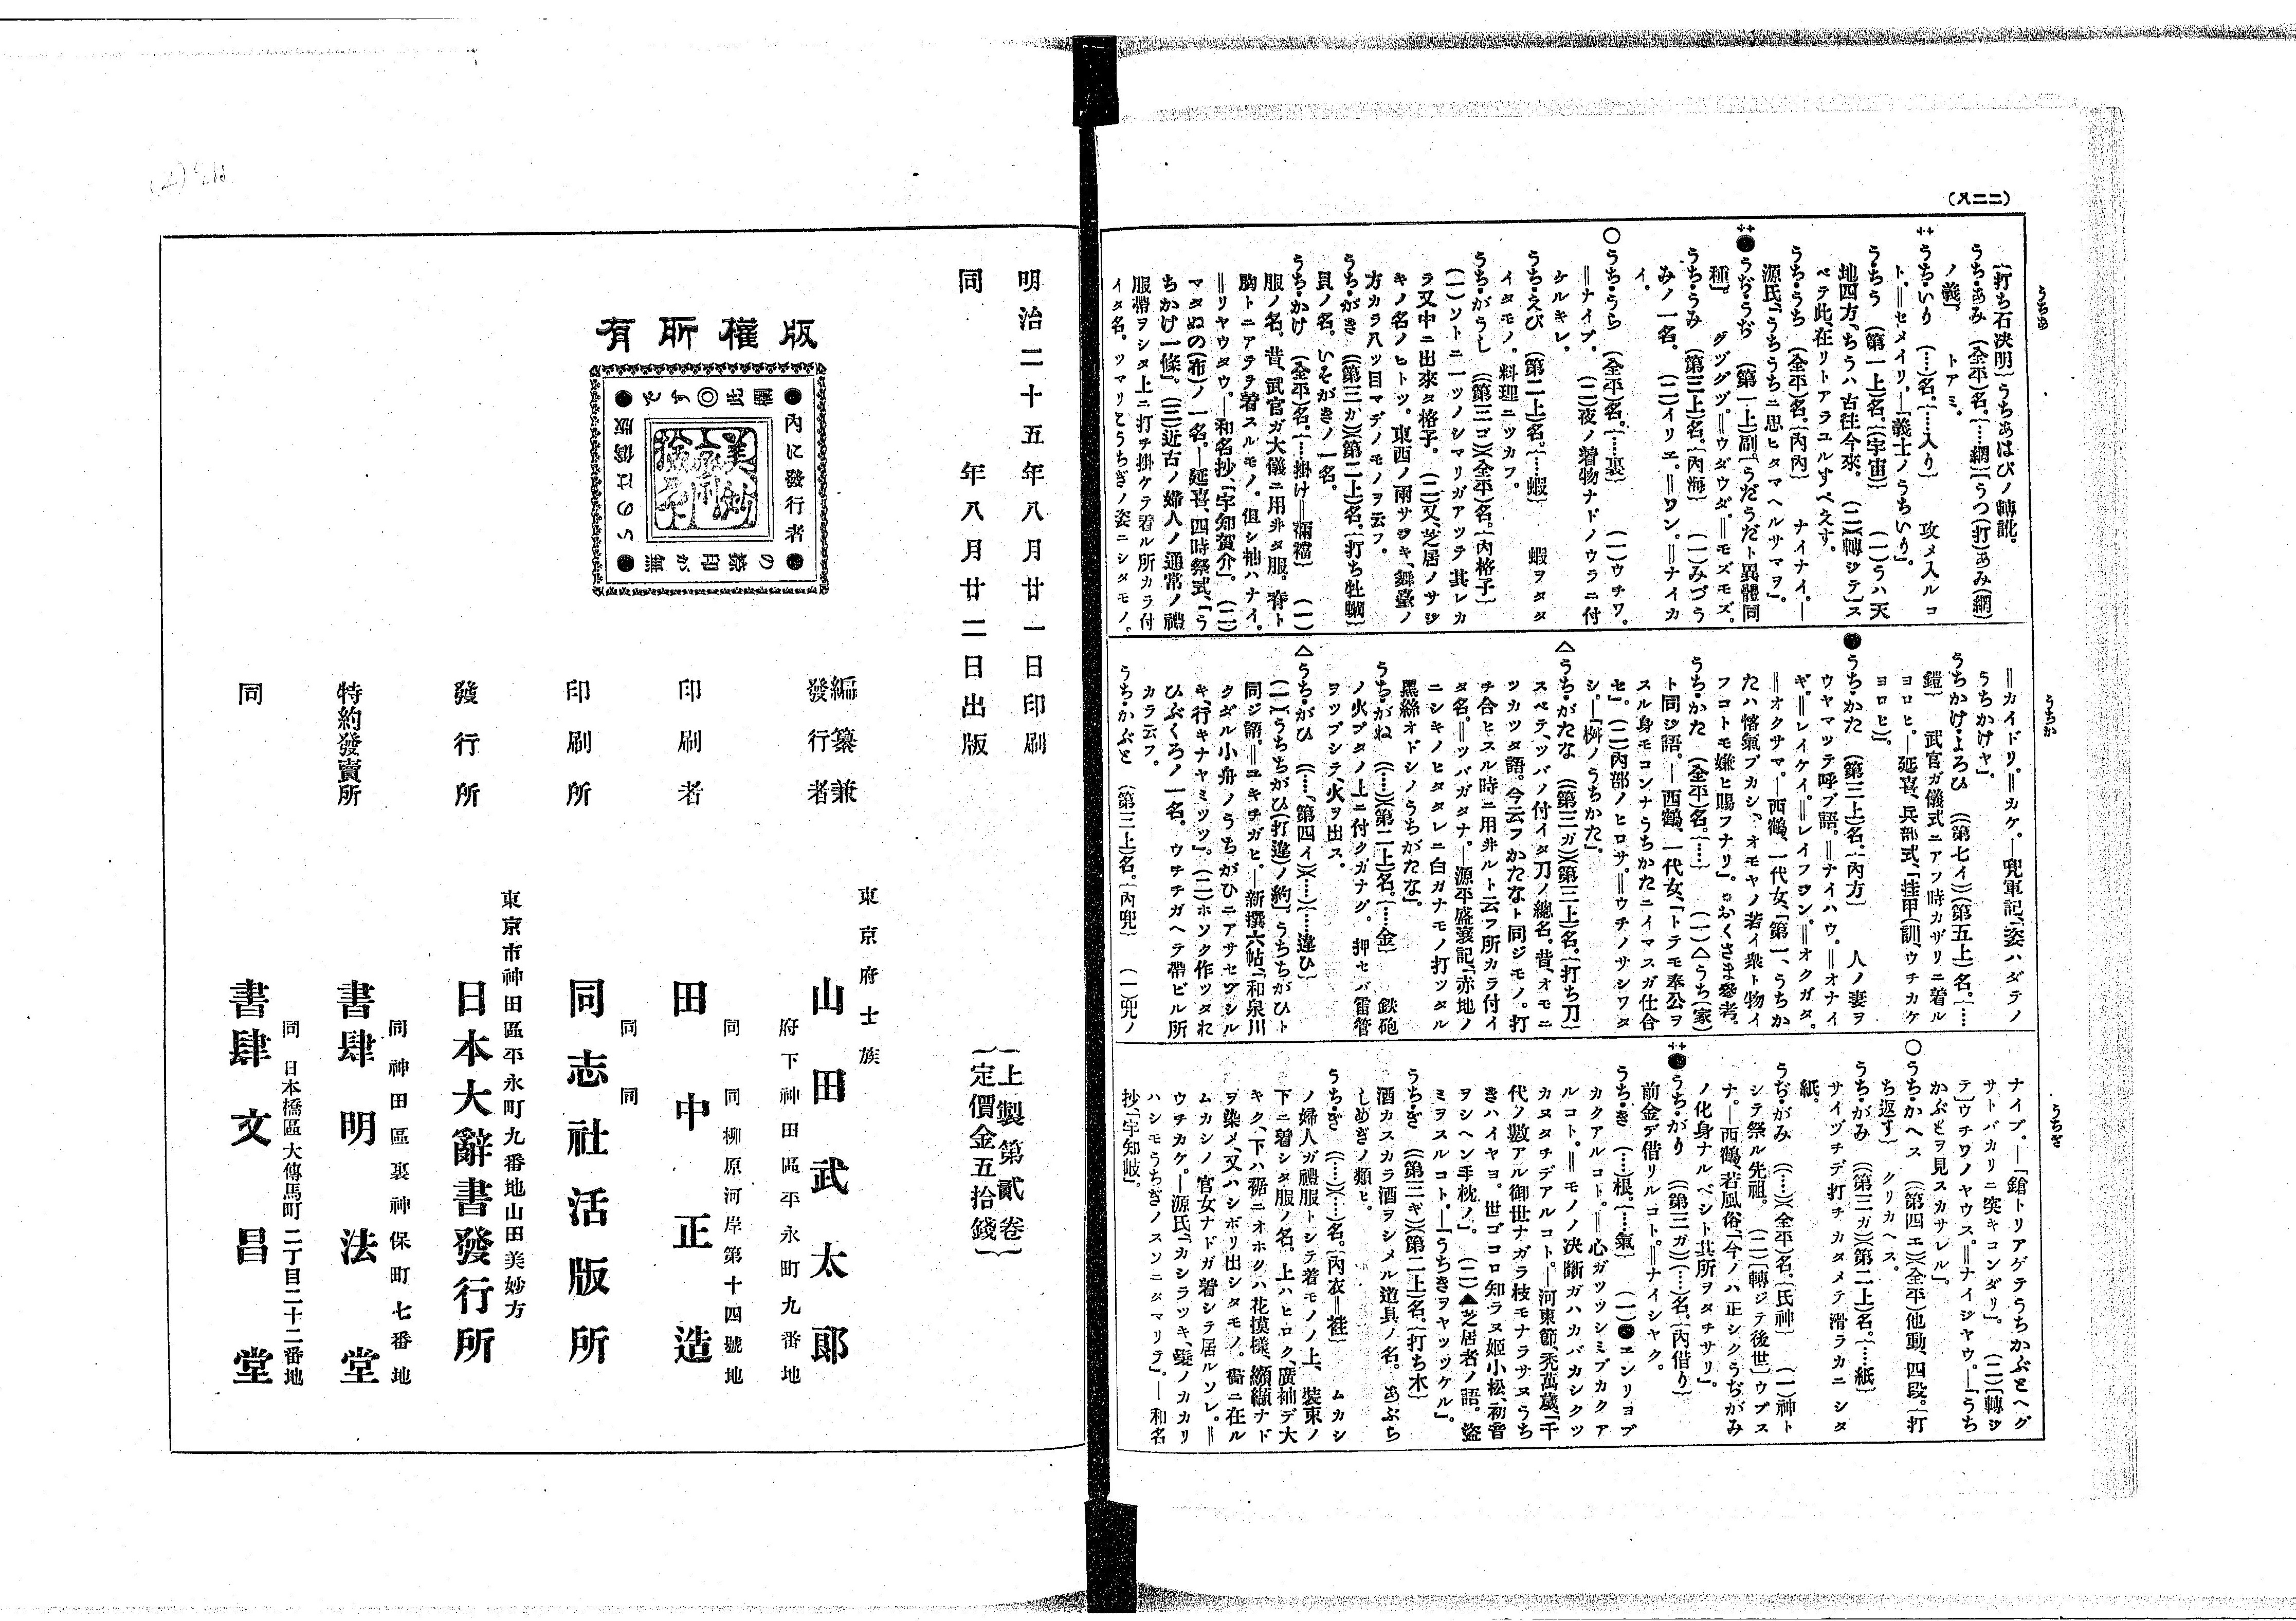 (二二八)
うちあ
うちか
うちき
(打ち石决明)うちあはびノ轉訛。
うち・あみ (全平)名。{……網}うつ(打)あみ(網)
ノ義。 トアミ。
うち・いり (……)名。{……入り} 攻メ入ルコ
ト。‖セメイリ。―「義士ノうちいり」。
うちう (第一上)名。{宇宙} (一)うハ天
地四方、ちうハ古徃今來。 (二)(轉ジテ)ス
ベテ此、在リトアラユルすべえす。
うち・うち (全平)名。{內內} ナイナイ。―
源氏、「うちうちニ思ヒタマヘルサマヲ」。
うぢ・うぢ (第一上)副。「うだうだト異體同
種」 グヅグヅ。‖ウダウダ。‖モズモズ。
うち・うみ (第三上)名。{內海} (一)みづう
みノ一名。 (二)イリエ。‖ワン。‖ナイカ
イ。
うち・うら (全平)名。{……裏} (一)ウチワ。
‖ナイブ。 (二)夜ノ着物ナドノウラニ付
ケルキレ。
うち・えび (第二上)名。{……蝦} 蝦ヲタタ
イタモノ。料理ニツカフ。
うち・がうし (第三ゴ)(全平)名。{內格子}
(一)ソトニ一ツノシマリガアツテ其レカ
ラ又中ニ出來タ格子。 (二)又、芝居ノサジ
キノ名ノヒトツ。東西ノ雨サジキ、舞臺ノ
方カラ八ツ目マデノモノヲ云フ。
うち・がき (第三ガ)(第二上)名。{打ち牡蠣}
貝ノ名。いそがきノ一名。
うち・かけ (全平)名。{……掛け‖裲襠} (一)
服ノ名。昔、武官ガ大儀ニ用井タ服。脊ト
胸トニアテテ着スルモノ。但シ袖ハナイ。
‖リヤウタウ。―和名抄、「宇知賀介」。 (二)
マタぬの(布)ノ一名。―延喜、四時祭式、「う
ちかけ一條」。 (三)近古ノ婦人ノ通常ノ禮
服帶ヲシタ上ニ打チ掛ケテ着ル所カラ付
イタ名。ツマリとうちぎノ姿ニシタモノ。
‖カイドリ。‖カケ。―兜軍記、「姿ハダテノ
うちかけヤ」。
うちかけ・よろひ (第七イ)(第五上)名。{……
鎧} 武官ガ儀式ニアフ時カザリニ着ル
ヨロヒ。―延喜、兵部式、「挂甲(訓、ウチカケ
ヨロヒ)」。
うち・かた (第三上)名。{內方} 人ノ妻ヲ
ウヤマツテ呼ブ語。‖ナイハウ。‖オナイ
ギ。‖レイケイ。‖レイフジン。‖オクガタ。
‖オクサマ。―西鶴、一代女、「第一、うちか
たハ悋氣ブカシ、オモヤノ若イ衆ト物イ
フコトモ嫌ヒ賜フナリ」。おくさま參考。
うち・かた (全平)名。{……} (一)△うち(家)
ト同ジ語。―西鶴、一代女、「トテモ奉公ヲ
スル身モコンナうちかたニイマスガ仕合
セ」。 (二)內部ノヒロサ。‖ウチノサシワタ
シ。―「桝ノうちかた」。
うち・がたな (第三ガ)(第三上)名。{打ち刀}
スベテ、ツバノ付イタ刀ノ總名。昔、オモニ
ツカツタ語。今云フかたなト同ジモノ。打
チ合ヒスル時ニ用井ルト云フ所カラ付イ
タ名。‖ツバガタナ。―源平盛衰記、「赤地ノ
ニシキノヒタタレニ白ガナモノ打ツタル
黑絲オドシノうちがたな」。
うち・がね (……)(第二上)名。{……金} 鉄砲
ノ火ブタノ上ニ付クガナグ。押セバ雷管
ヲツブシテ、火ヲ出ス。
うち・がひ (……、第四イ)(……)(……違ひ)
(一)うちちがひ(打違)ノ約。うちちがひト
同ジ語。‖ユキチガヒ。―新撰六帖、「和泉川
クダル小舟ノうちがひニアサセヅシル
キ、行キナヤミツツ」。(二)ホソク作ツタれ
ひぶくろノ一名。 ウチチガヘテ帶ビル所
カラ云フ。
うち・かぶと (第三上)名。{內兜} (一)兜ノ
ナイブ。―「鎗トリアゲテうちかぶとヘグ
サトバカリニ突キコンダリ」。 (二)(轉ジ
テ)ウチワノヤウス。‖ナイジヤウ。―「うち
かぶとヲ見スカサレル」。
うち・かへス (第四エ)(全平)他動、四段。{打
ち返す} クリカヘス。
うち・がみ (第三ガ)(第二上)名。{……紙}
サイヅチデ打チカタメテ滑ラカニシタ
紙。
うぢ・がみ (……)(全平)名。{氏神} (一)神ト
シテ祭ル先祖。 (二)(轉ジテ後世)ウブス
ナ。―西鶴、若風俗、「今ノハ正シクうぢがみ
ノ化身ナルベシト其所ヲタチサリ」。
うち・がり (第三ガ)(……)名。{內借り}
前金デ借リルコト。‖ナイシヤク。
うち・き (……)根。{……氣} (一)●エンリヨブ
カクアルコト。‖心ガツツシミブカクア
ルコト。‖モノノ决斷ガハカバカシクツ
カヌタチデアルコト。―河東節、禿萬歲、「千
代ノ數アル御世ナガラ枝モナラサヌうち
きハイヤヨ。世ゴコロ知ラヌ姬小松、初音
ヲシヘン手枕ノ」。 (二)▲芝居者ノ語。盜
ミヲスルコト。―「うちきヲヤツツケル」。
うち・ぎ (第三ギ)(第二上)名。{打ち木}
酒カスカラ酒ヲシメル道具ノ名。あぶら
しめぎノ類ヒ。
うち・ぎ (……)(……)名。{內衣‖袿} ムカシ
ノ婦人ガ禮服トシテ着モノノ上、裝束ノ
下ニ着シタ服ノ名。上ハヒロク、廣袖デ大
キク、下ハ裾ニオホクハ花摸樣、纐纈ナド
ヲ染メ、又ハシボリ出シタモノ。衞ニ在ル
ムカシノ官女ナドガ着シテ居ルソレ。‖
ウチカケ。―源氏、「カシラツキ、髮ノカカリ
ハシモうちぎノスソニタマリテ」。―和名
抄「宇知岐」。
明治二十五年八月廿一日印刷
同 年八月廿二日出版
{上製第貳卷}
{定價金五拾錢}
版權所有
●內に發行者●
の檢印が無
●いのは僞版●
此 ◎ す で
美妙
編纂兼
發行者
東京府士族
山田武太郎
府下神田區平永町九番地
印刷者
田中正造
同 同 柳原河岸第十四號地
印刷所
同志社活版所
同 同
發行所
東京市神田區平永町九番地山田美妙方
日本大辭書發行所
特約發賣所
書肆 明法堂
同 神田區裏神保町七番地
同
書肆 文昌堂
同 日本橋區大傳馬町二丁目二十二番地